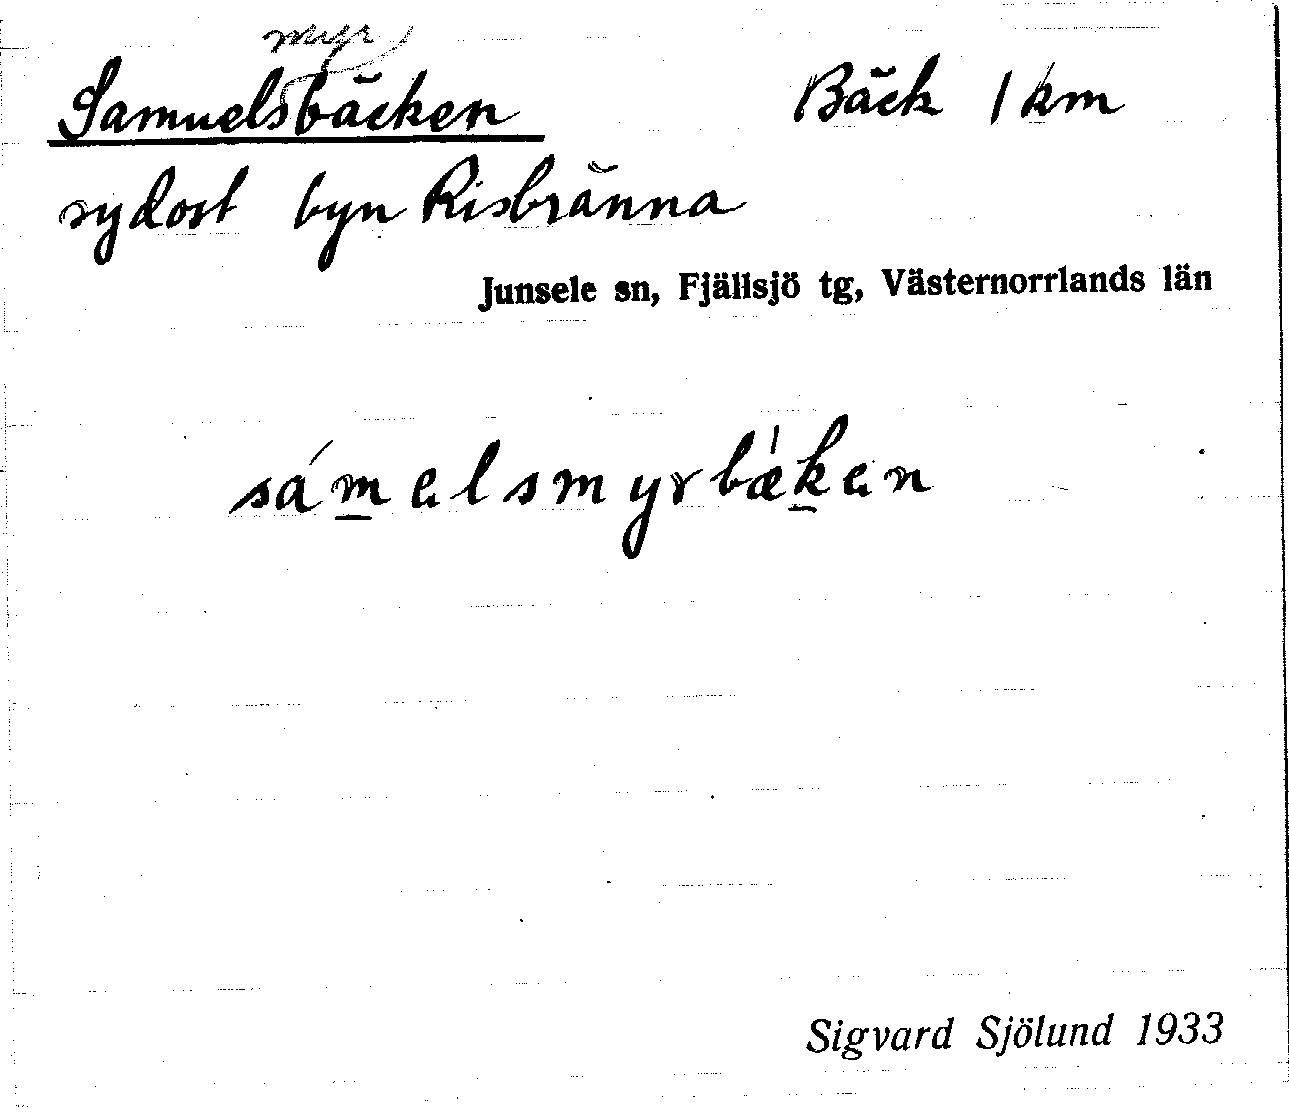 myr
Samuelsbäcken Bäck 1 km
sydost byn Risbränna
Junsele sn, Fjällsjö tg, Västernorrlands län
sámelsmyrbæken
Sigvard Sjölund 1933